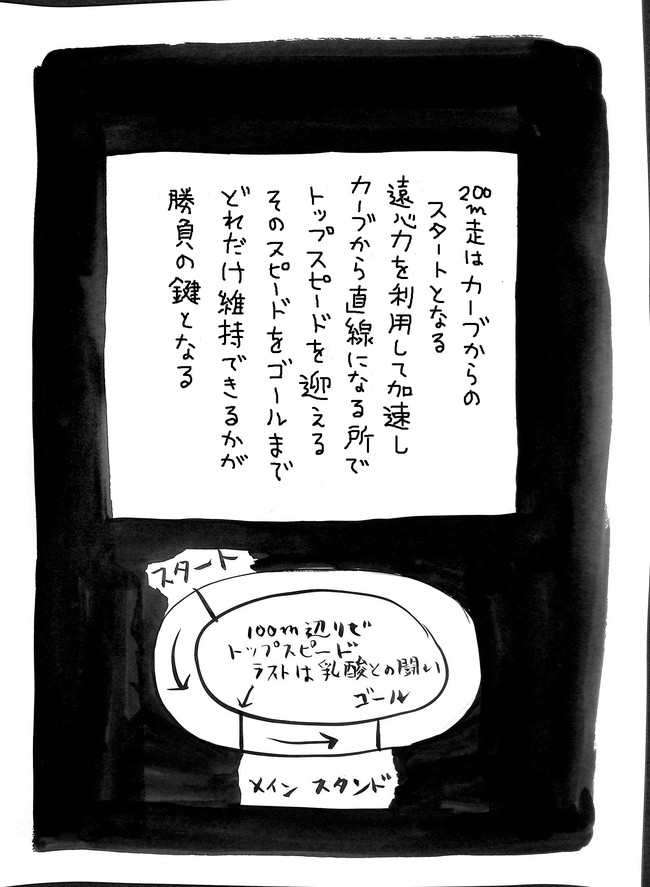 200m走はカーブからの
スタートとなる
遠心力を利用して加速し
カーブから直線になる所で
トップスピードを迎える
そのスピードをゴールまで
どれだけ維持できるかが
勝負の鍵となる
スタート
100m辺りで
トップスピード
ラストは乳酸との闘い
ゴール
メインスタンド